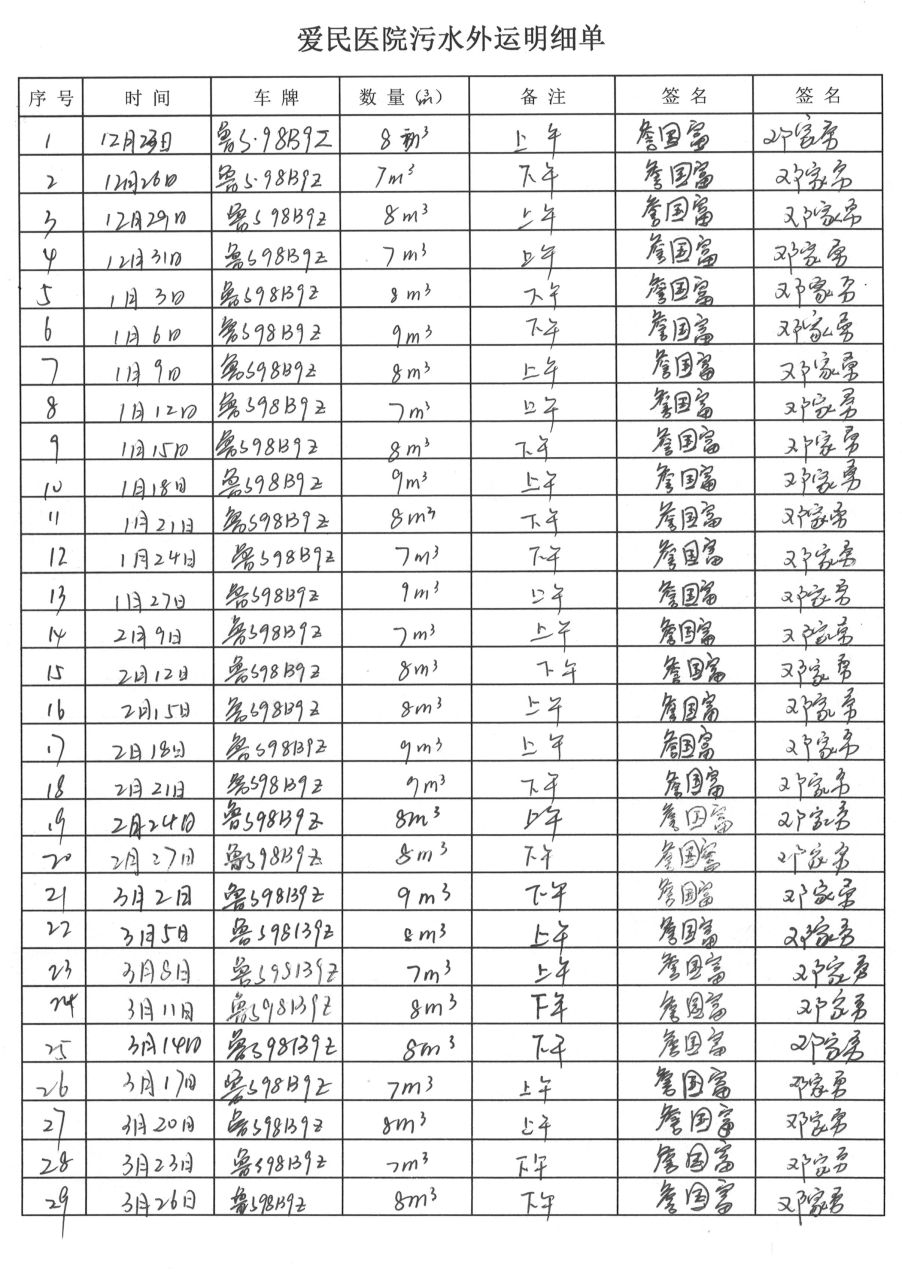 爱民医院污水外运明细单
序号 时间 车牌 数量(m³) 备注 签名 签名
1 12月23日 鲁S·98B9Z 8 m³ 上午 詹国富 邓家勇
2 12月26日 鲁S·98B9Z 7m³ 下午 詹国富 邓家勇
3 12月29日 鲁S98B9Z 8m³ 上午 詹国富 邓家勇
4 12月31日 鲁S98B9Z 7m³ 上午 詹国富 邓家勇
5 1月3日 鲁S98B9Z 8m³ 下午 詹国富 邓家勇
6 1月6日 鲁S98B9Z 9m³ 下午 詹国富 邓家勇
7 1月9日 鲁S98B9Z 8m³ 上午 詹国富 邓家勇
8 1月12日 鲁S98B9Z 7m³ 上午 詹国富 邓家勇
9 1月15日 鲁S98B9Z 8m³ 下午 詹国富 邓家勇
10 1月18日 鲁S98B9Z 9m³ 上午 詹国富 邓家勇
11 1月21日 鲁S98B9Z 8m³ 下午 詹国富 邓家勇
12 1月24日 鲁S98B9Z 7m³ 下午 詹国富 邓家勇
13 1月27日 鲁S98B9Z 9m³ 上午 詹国富 邓家勇
14 2月9日 鲁S98B9Z 7m³ 上午 詹国富 邓家勇
15 2月12日 鲁S98B9Z 8m³ 下午 詹国富 邓家勇
16 2月15日 鲁S98B9Z 8m³ 上午 詹国富 邓家勇
17 2月18日 鲁S98B9Z 9m³ 上午 詹国富 邓家勇
18 2月21日 鲁S98B9Z 9m³ 下午 詹国富 邓家勇
19 2月24日 鲁S98B9Z 8m³ 上午 詹国富 邓家勇
20 2月27日 鲁S98B9Z 8m³ 下午 詹国富 邓家勇
21 3月2日 鲁S98B9Z 9m³ 下午 詹国富 邓家勇
22 3月5日 鲁S98B9Z 8m³ 上午 詹国富 邓家勇
23 3月8日 鲁S98B9Z 7m³ 上午 詹国富 邓家勇
24 3月11日 鲁S98B9Z 8m³ 下午 詹国富 邓家勇
25 3月14日 鲁S98B9Z 8m³ 下午 詹国富 邓家勇
26 3月17日 鲁S98B9Z 7m³ 上午 詹国富 邓家勇
27 3月20日 鲁S98B9Z 8m³ 上午 詹国富 邓家勇
28 3月23日 鲁S98B9Z 7m³ 下午 詹国富 邓家勇
29 3月26日 鲁S98B9Z 8m³ 下午 詹国富 邓家勇